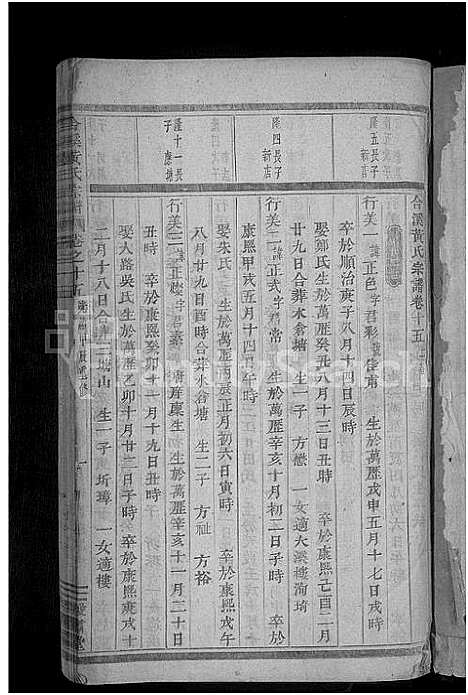 合溪黃氏宗譜卷十五
隆五長子
新店
行美一 諱正色字君彩 生於萬歷戊申五月十七日戌時
卒於順治庚子八月十四日辰時
娶鄭氏生於萬歷癸丑八月十三日丑時 卒於康熙己酉二月
廿九日合葬水倉塘 生一子 方懋 一女適大溪樓洵琦
隆四長子
新店
行美二 諱正式字君常 生於萬歷辛亥十月初二日子時 卒於
康熙甲戌五月十四日午時
娶朱氏生於萬歷丙辰正月初六日寅時 卒於康熙戊午
八月廿九日酉時合葬水倉塘 生二子 方祉 方裕
隆十一長
子 康塘
行美三 諱正 字君泰 康生生於萬歷辛亥十一月二十日
丑時 卒於康熙癸卯十一月十九日丑時
娶大路吳氏生於萬歷乙卯十月廿二日子時 卒於康熙庚戌十
二月十八日合葬 塘山 生一子 圻璋 一女適樓
合溪黃氏宗譜 卷之十五